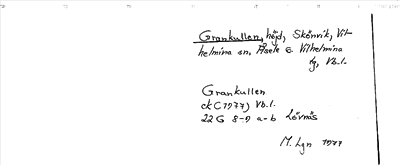 Grankullen, höjd, Skönvik, Vil-
helmina sn, Åsele o. Vilhelmina
tg, Vb.l.
Grankullen
ek (1977) Vb.l.
22 G 8-9 a-b Lövnäs
M. Lgn 1977